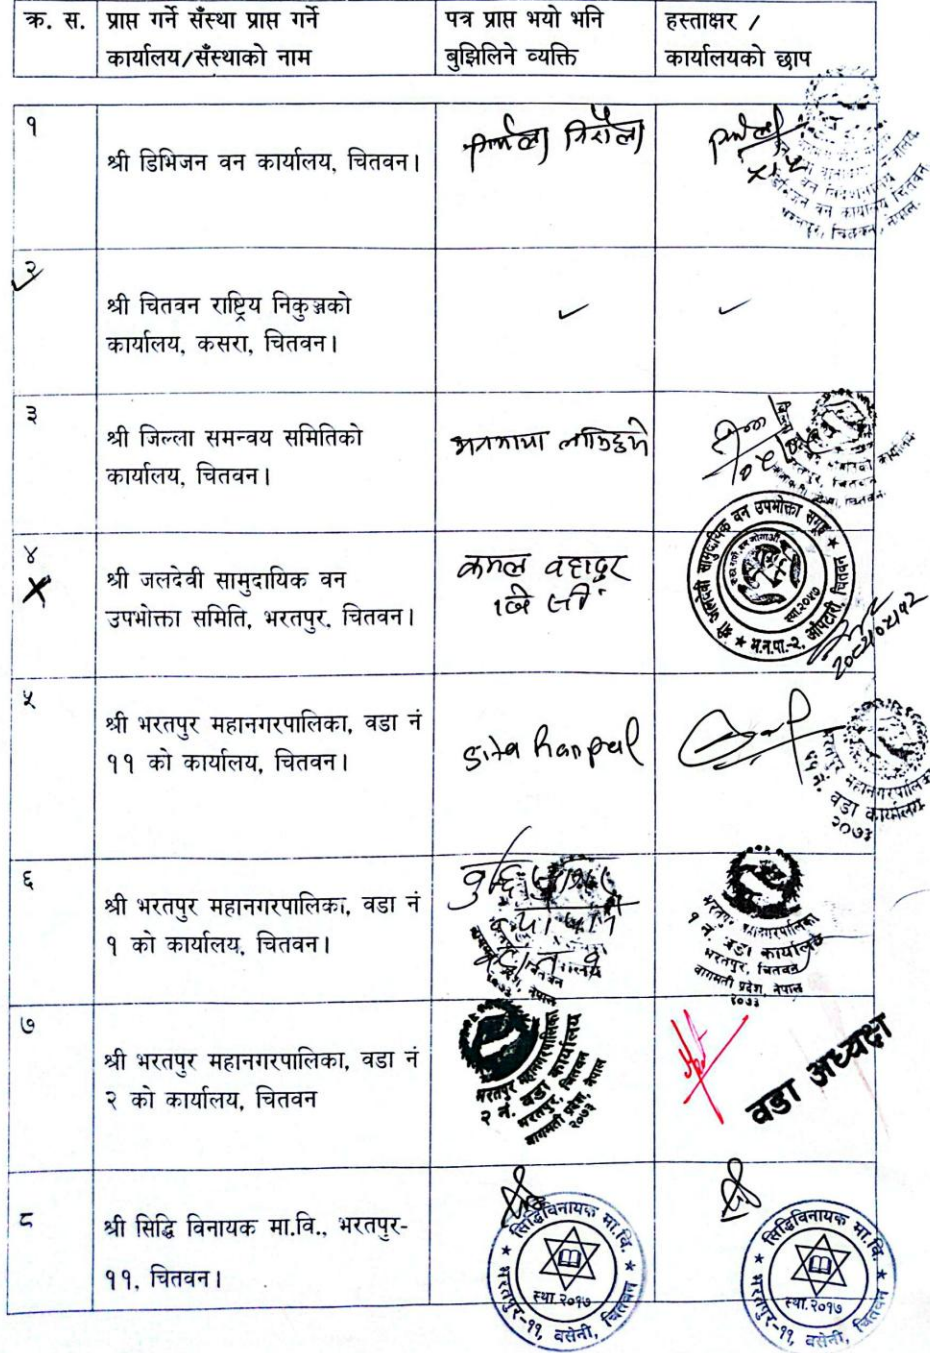 क्र. स.
प्राप्त गर्ने सँस्था प्राप्त गर्ने
कार्यालय/सँस्थाको नाम
पत्र प्राप्त भयो भनि
बुझिलिने व्यक्ति
हस्ताक्षर /
कार्यालयको छाप
१
श्री डिभिजन वन कार्यालय, चितवन।
डिभिजन वन कार्यालय चितवन
भरतपुर, चितवन, नेपाल
२
श्री चितवन राष्ट्रिय निकुञ्जको
कार्यालय, कसरा, चितवन।
३
श्री जिल्ला समन्वय समितिको
कार्यालय, चितवन।
४
श्री जलदेवी सामुदायिक वन
उपभोक्ता समिति, भरतपुर, चितवन।
कमल वहादुर
श्री जलदेवी सामुदायिक वन उपभोक्ता समूह
स्था.२०५७
भ.न.पा.-२, चितवन
५
श्री भरतपुर महानगरपालिका, वडा नं
११ को कार्यालय, चितवन।
Sita
भरतपुर महानगरपालिका
११ नं. वडा कार्यालय
२०७३
६
श्री भरतपुर महानगरपालिका, वडा नं
१ को कार्यालय, चितवन।
भरतपुर महानगरपालिका
१ नं. वडा कार्यालय
भरतपुर, चितवन
वागमती प्रदेश, नेपाल
२०७३
७
श्री भरतपुर महानगरपालिका, वडा नं
२ को कार्यालय, चितवन
भरतपुर महानगरपालिका
२ नं. वडा कार्यालय
भरतपुर, चितवन
बागमती प्रदेश, नेपाल
२०७३
वडा अध्यक्ष
८
श्री सिद्धि विनायक मा.वि., भरतपुर-
११, चितवन।
सिद्धिविनायक मा.वि.
स्था.२०१७
भरतपुर-११, बसेनी, चितवन
सिद्धिविनायक मा.वि.
स्था.२०१७
भरतपुर-११, बसेनी, चितवन